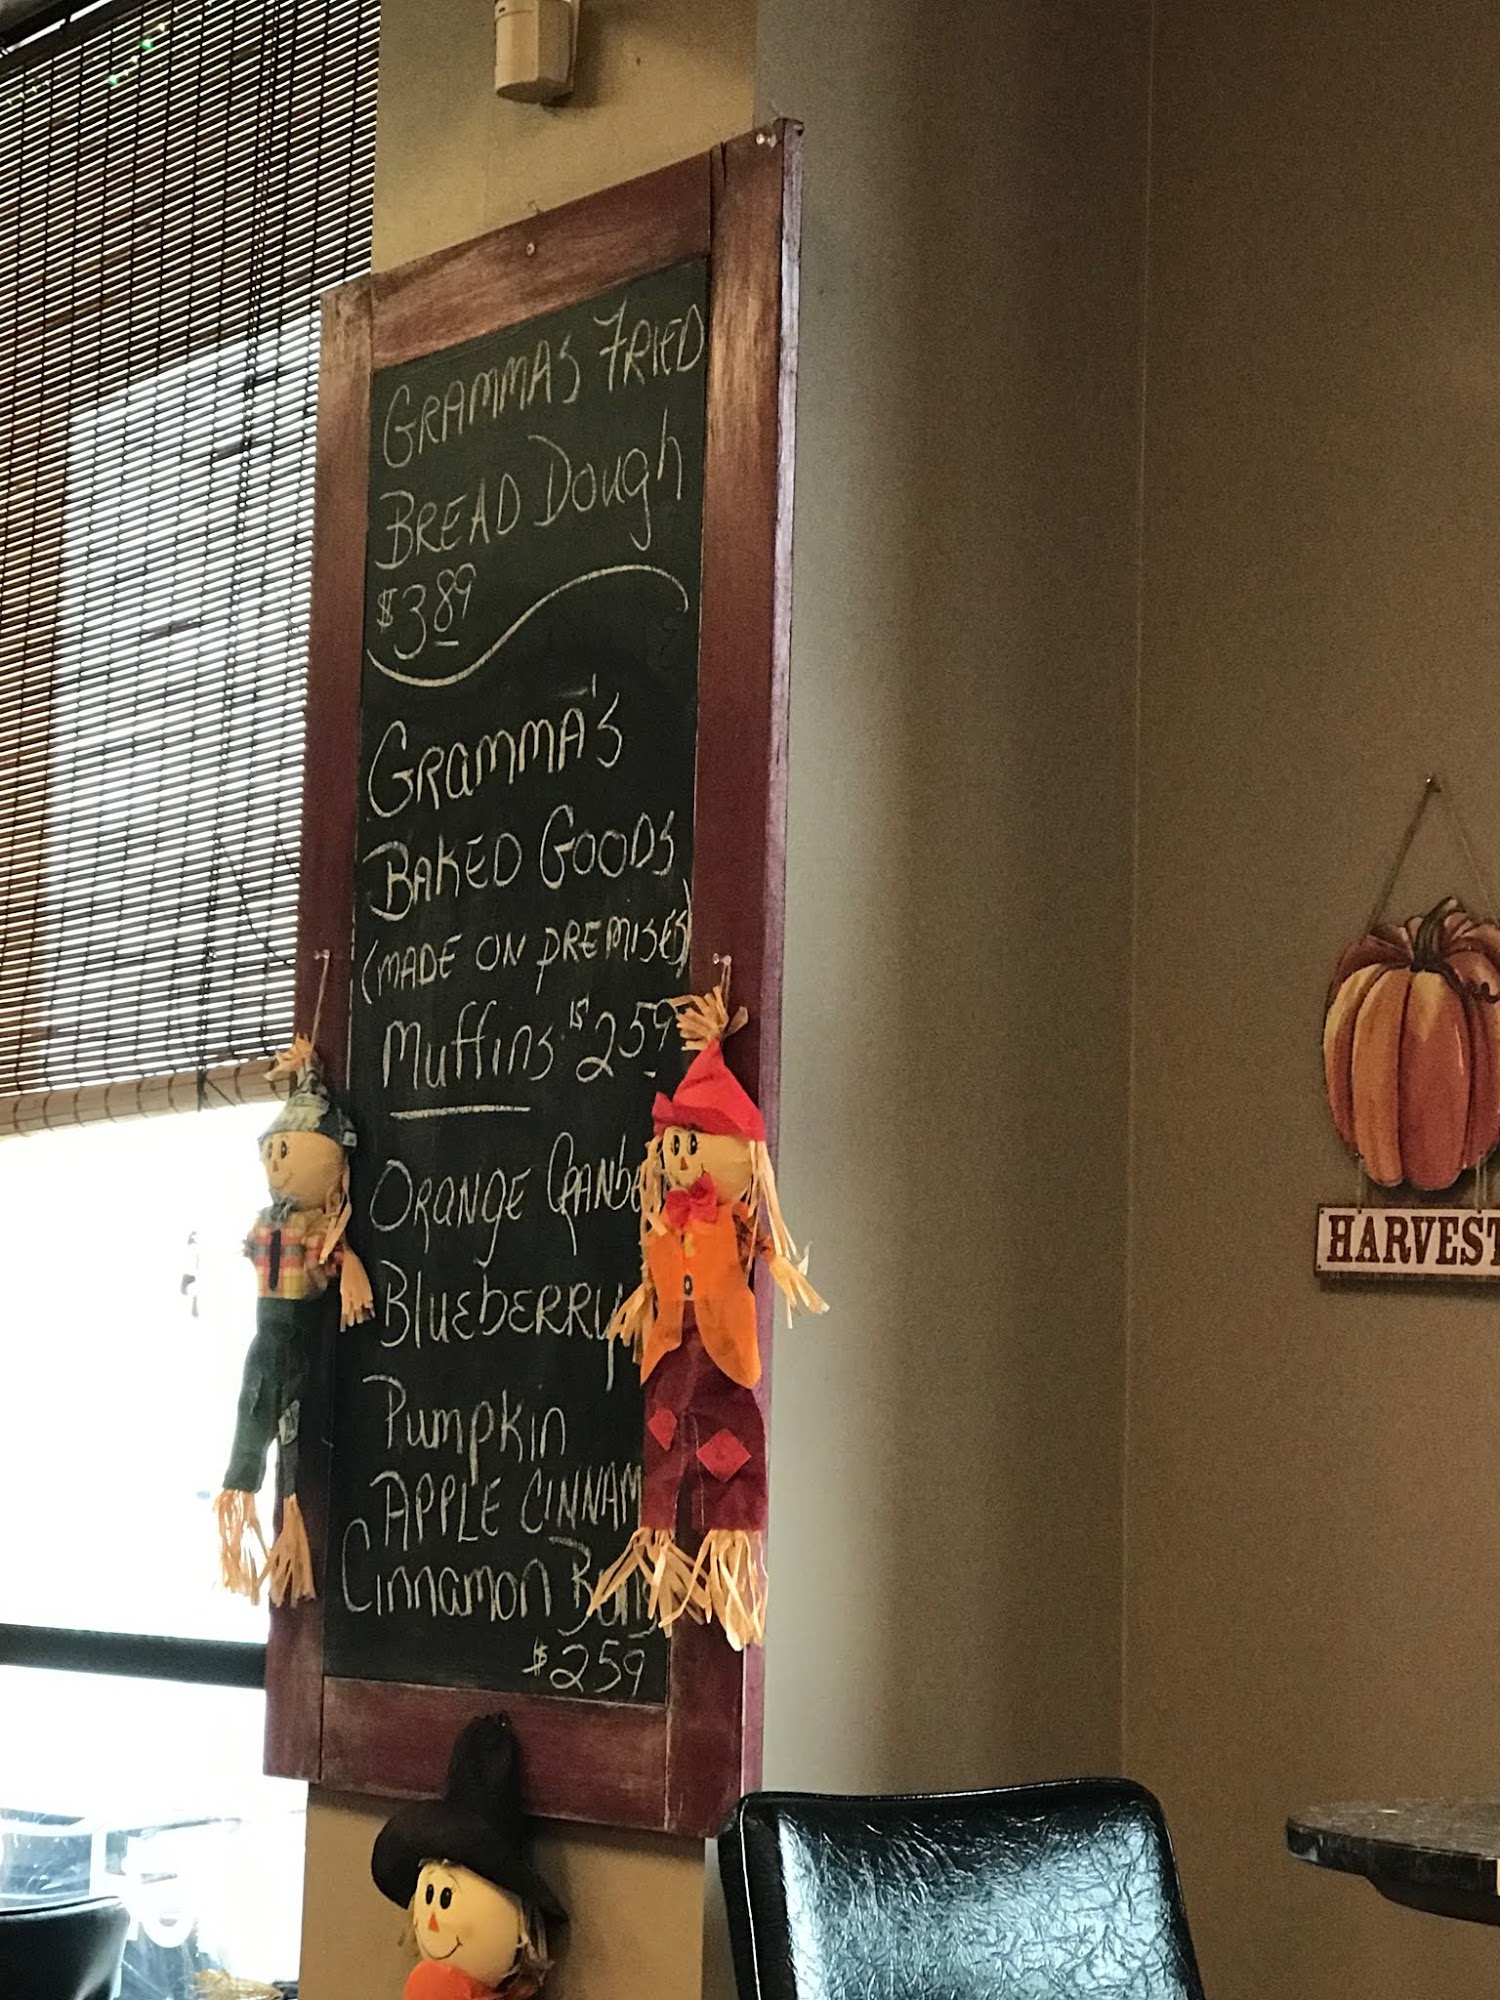 GRAMMA'S FRIED
BREAD Dough
$3.89
GRAMMA'S
BAKED GOODS
(MADE ON PREMISES)
Muffins $2.59
ORANGE
BluEbERRy
Pumpkin
APPLE
Cinnamon Buns
$2.59
HARVEST